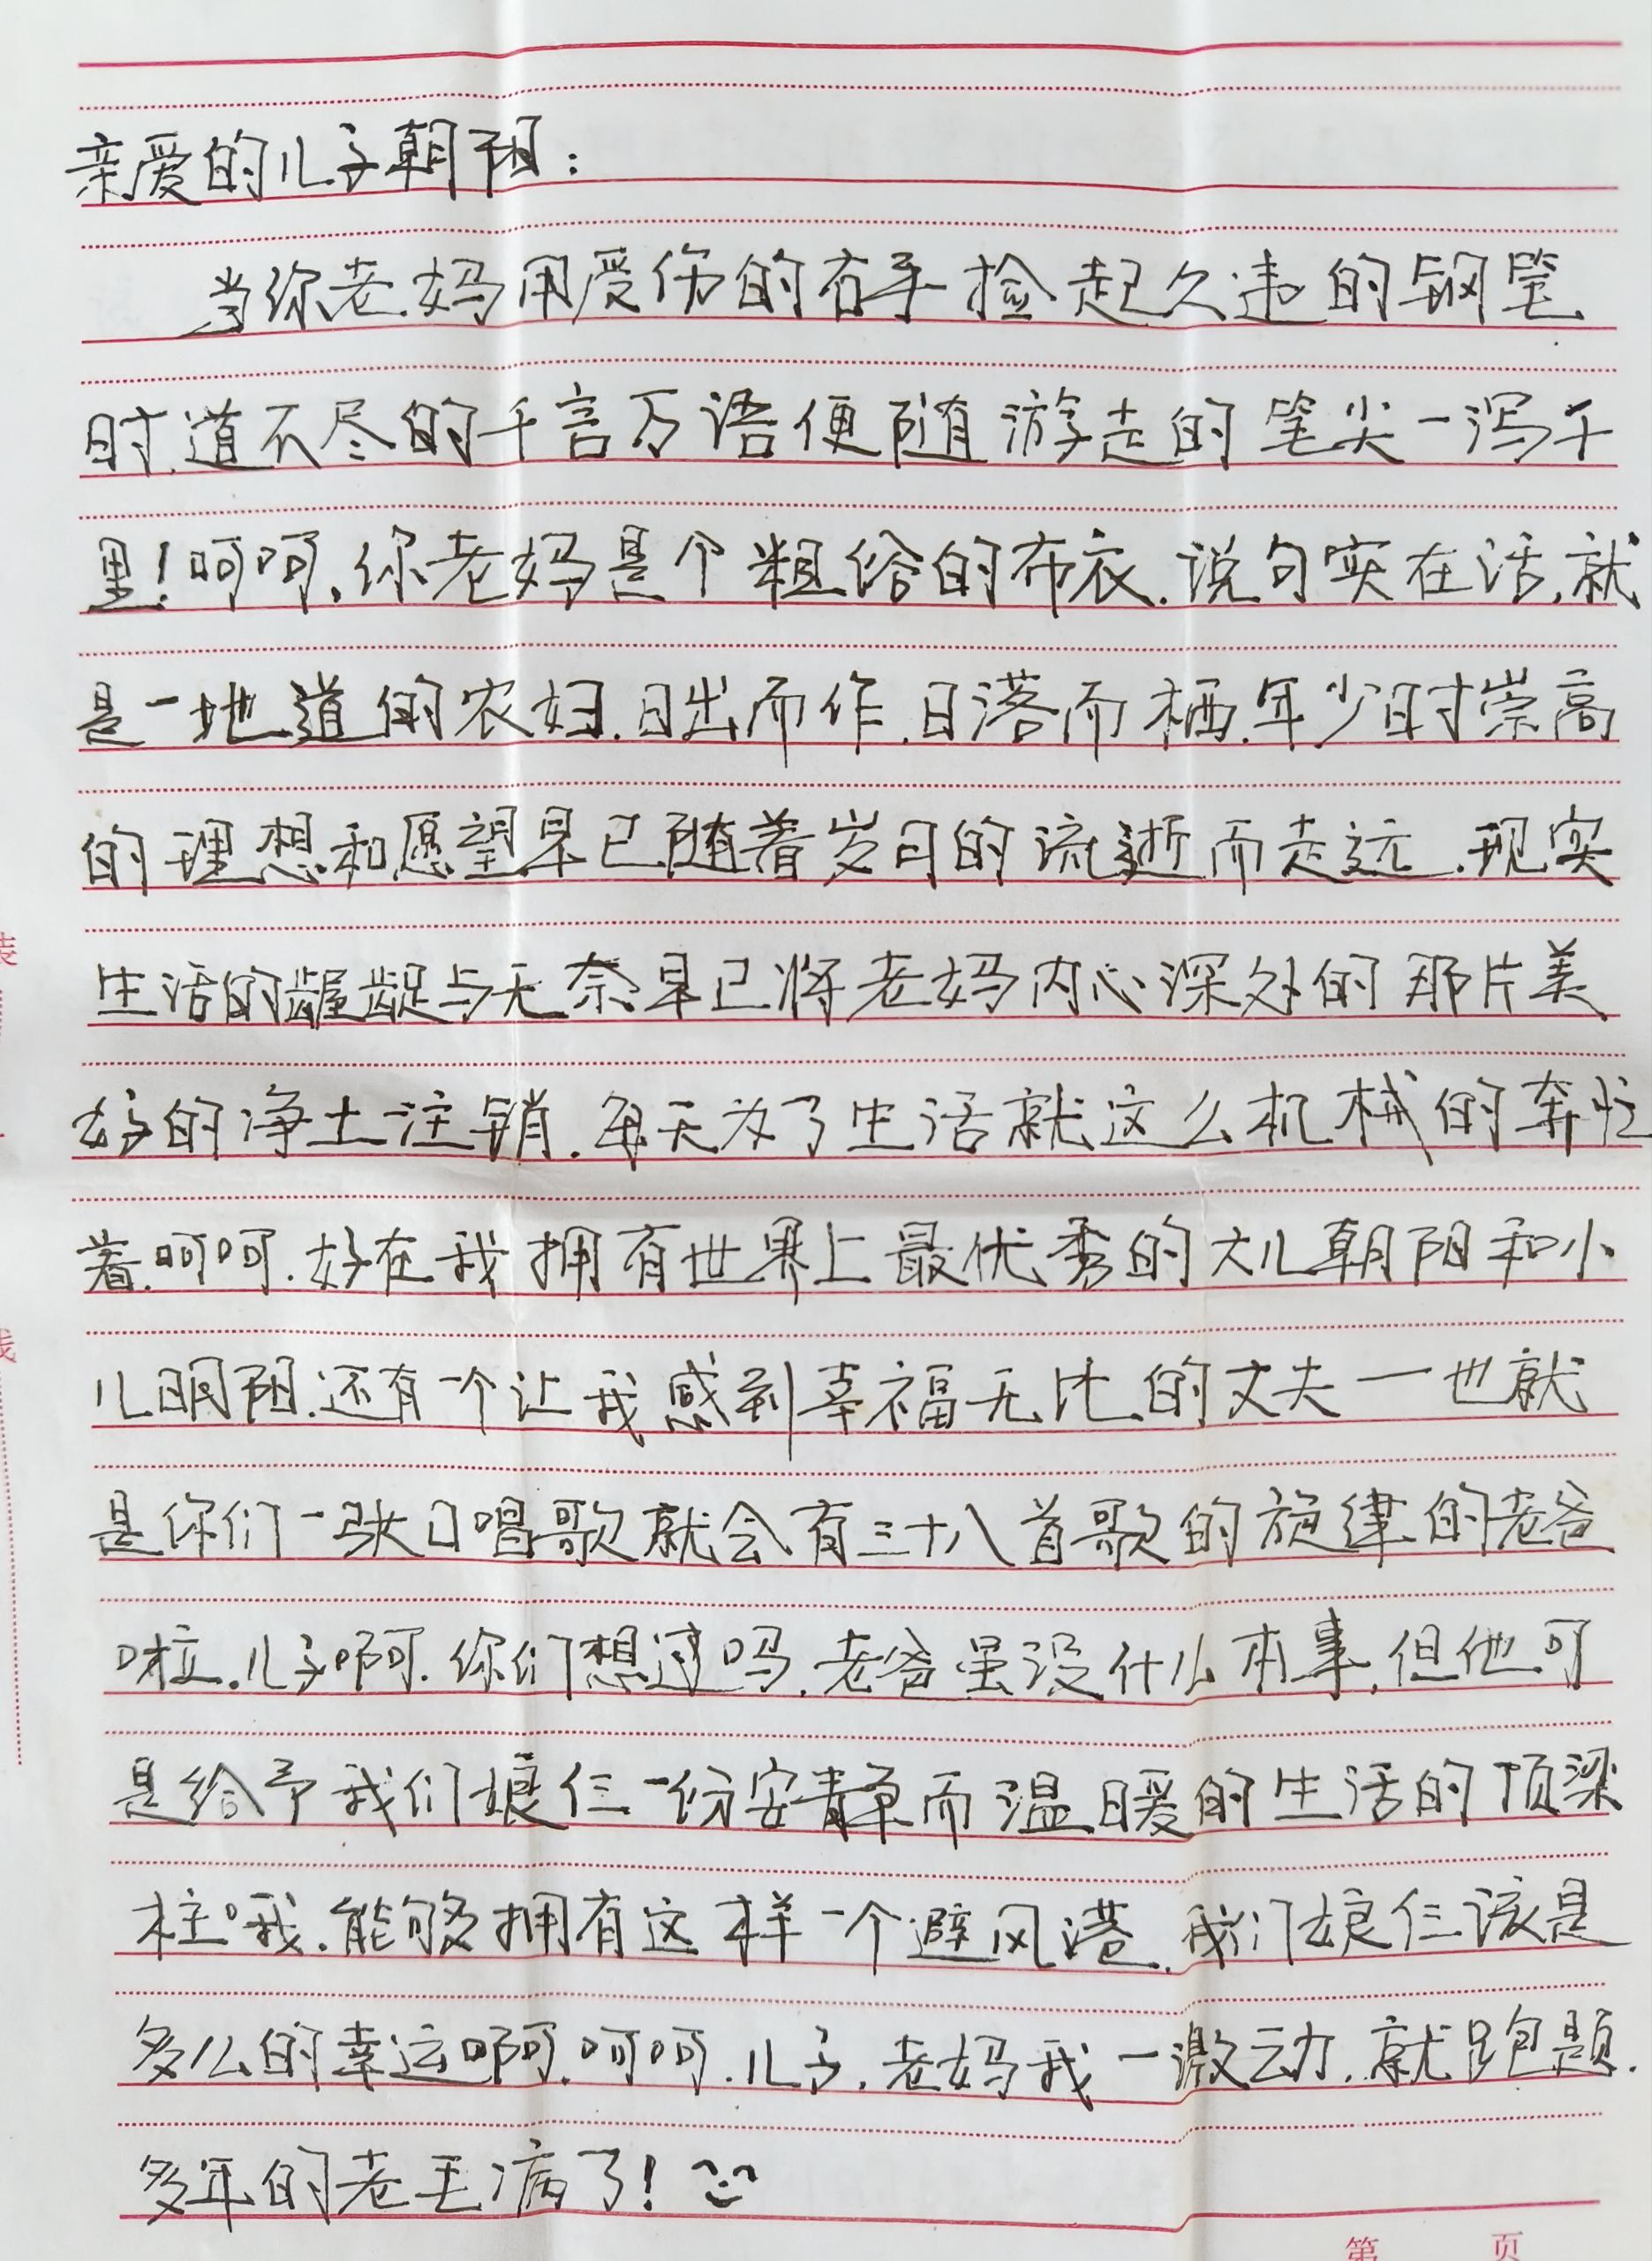 亲爱的儿子朝阳:
当你老妈用受伤的右手捡起久违的钢笔
时.道不尽的千言万语便随游走的笔尖一泻千
里!呵呵.你老妈是个粗俗的布衣.说句实在话,就
是一地道的农妇.日出而作.日落而栖.年少时崇高
的理想和愿望早已随着岁月的流逝而走远.现实
生活的龌龊与无奈早已将老妈内心深处的那片美
好的净土注销.每天为了生活就这么机械的奔忙
着.呵呵.好在我拥有世界上最优秀的大儿朝阳和小
儿明阳.还有一个让我感到幸福无比的丈夫一也就
是你们一张口唱歌就会有三十八首歌的旋律的老爸
啦.儿子啊.你们想过吗.老爸虽没什么本事,但他可
是给予我们娘仨一份安静而温暖的生活的顶梁
柱哦.能够拥有这样一个避风港.我们娘仨该是
多么的幸运啊.呵呵.儿子.老妈我一激动.就跑题.
多年的老毛病了!
第 页